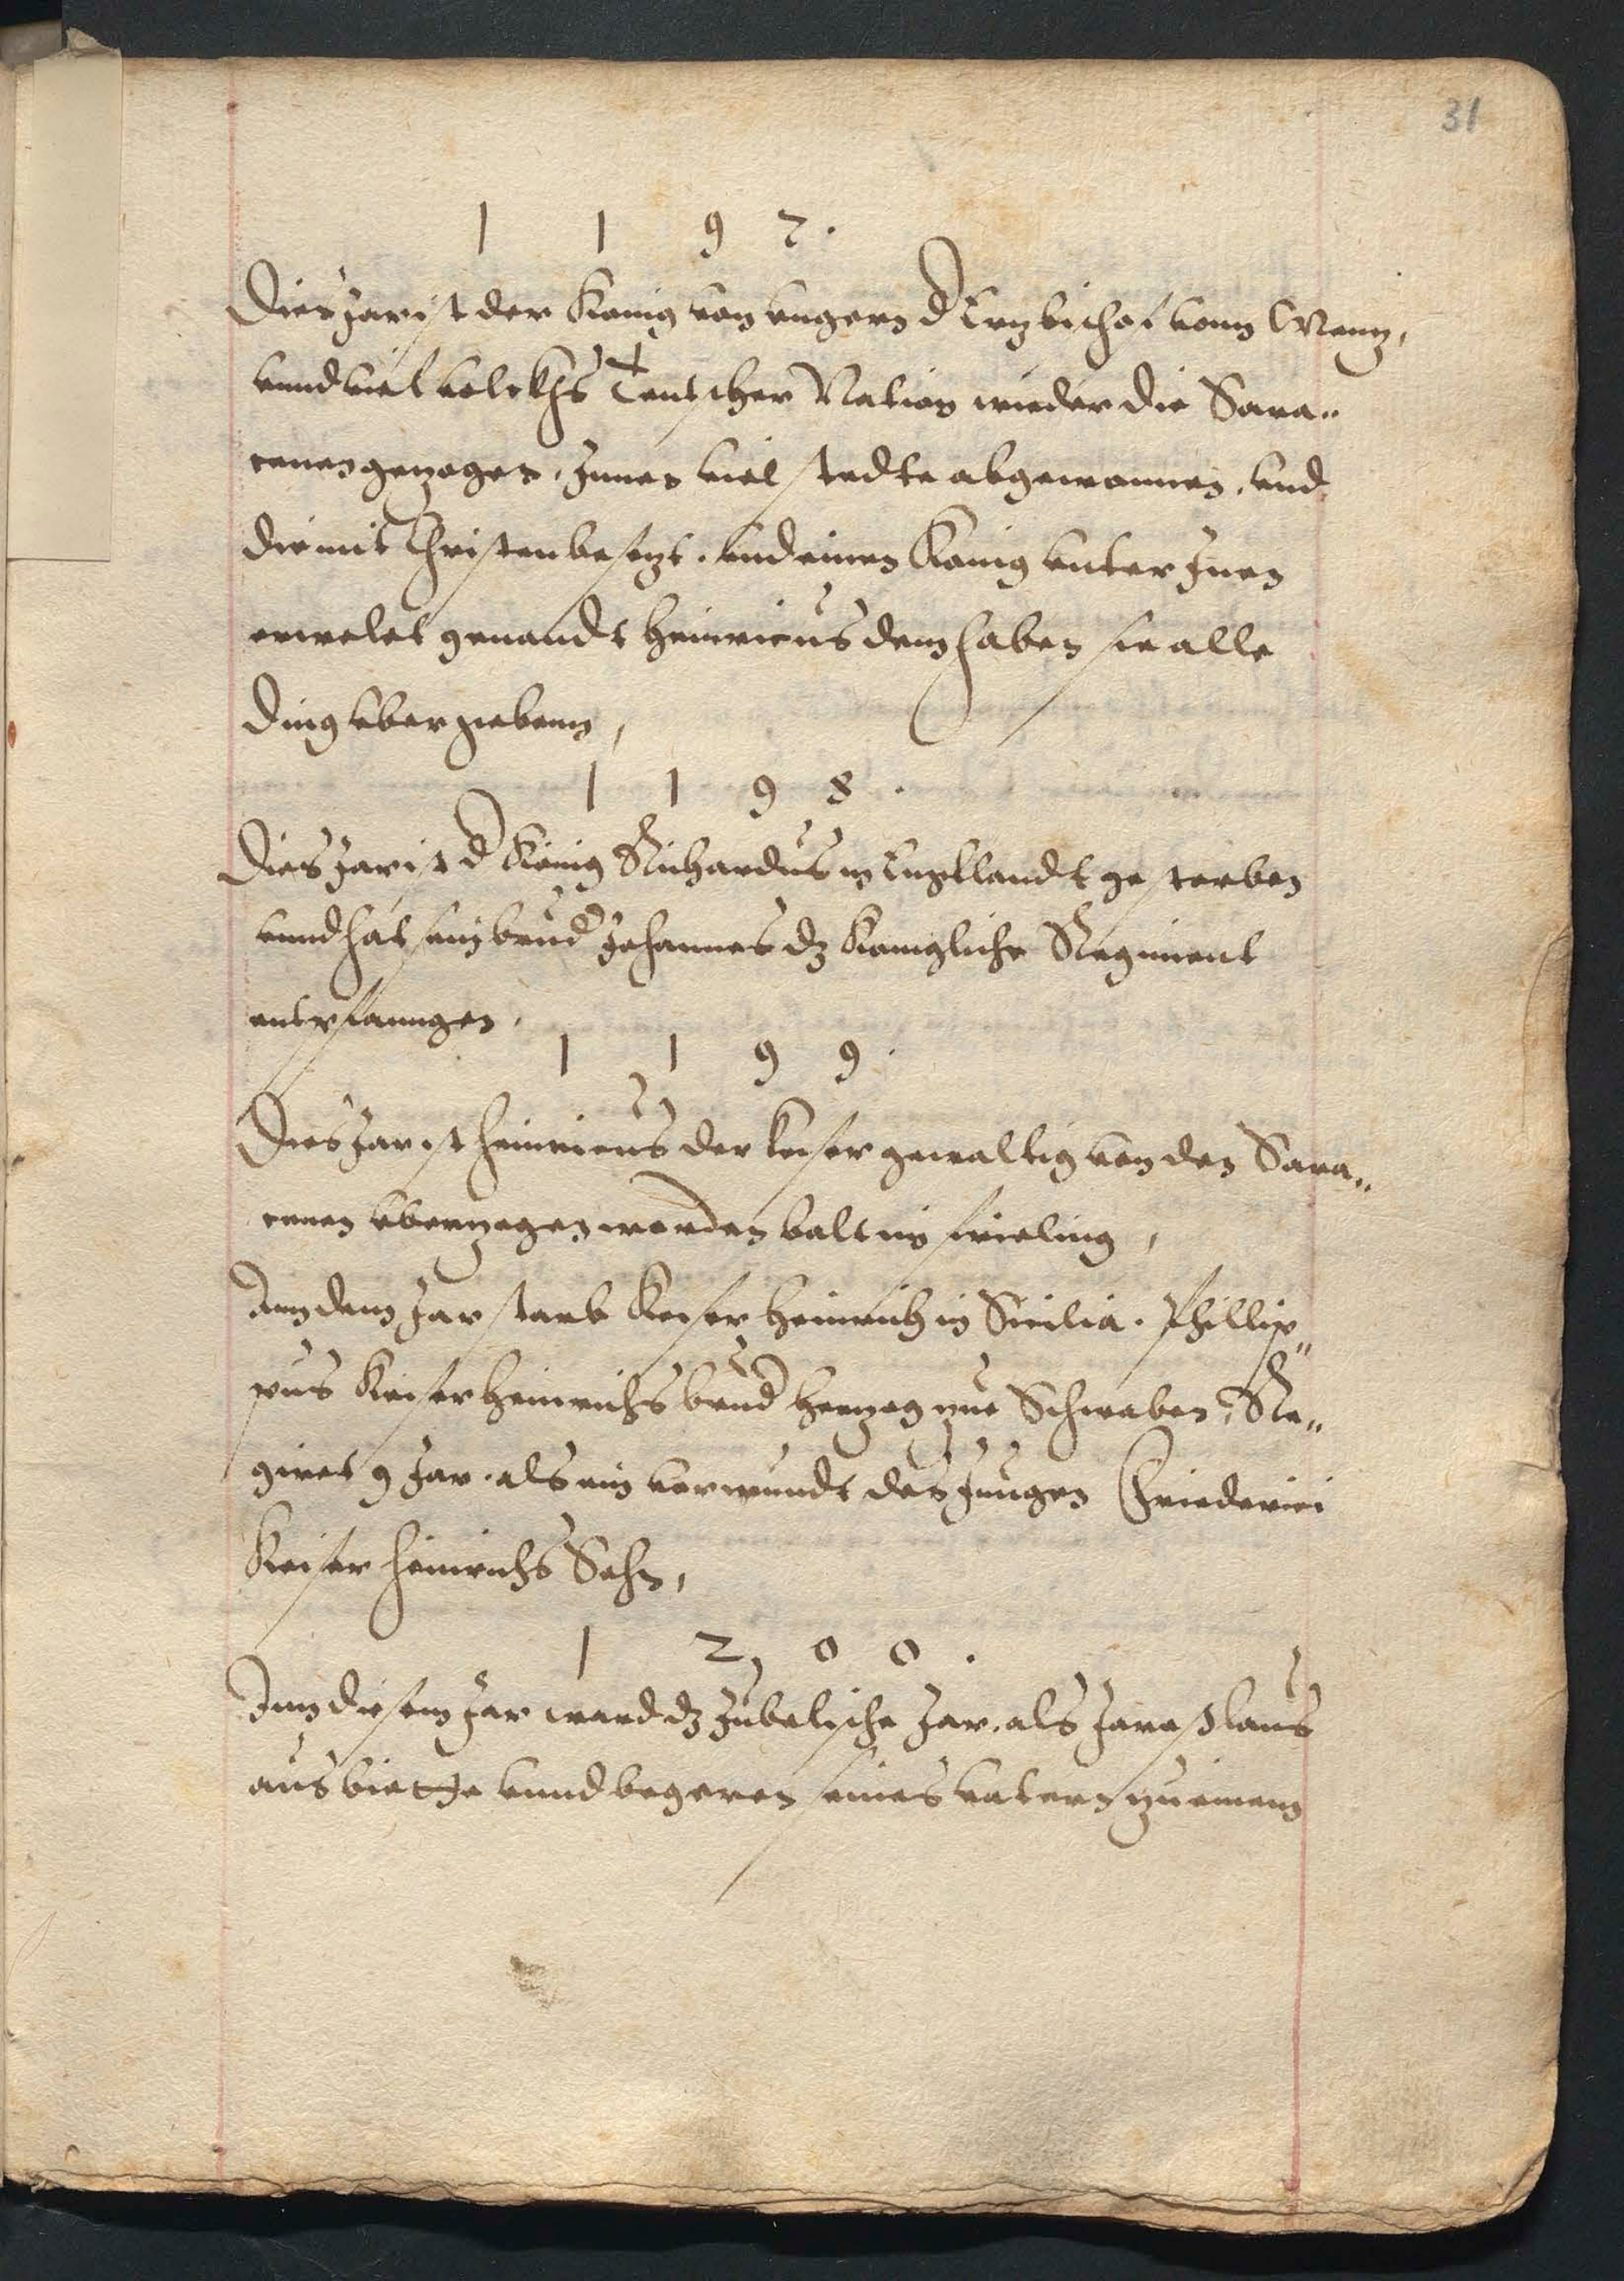 31
1 1 9 7.
Dies Jar ist der Konig von vngern d Ertzbischof vonn Mentz,
vnnd viel volckhs Teutscher Nation wieder die Sara„
cenen gezogen, Jnnen viel stedte abgewonnen, vnd
die mit Christen besetzt. vnd einen Konig vnter Jnen
erwelet genandt Heinricus dem haben sie alle
ding vbergebenn,
1 1 9 8.
Dies Jar ist d König Richardus in Engellandt gestorben
vnnd hat sein brud Johannes dz Konigliche Regiment
entpfanngen,
1 1 9 9.
Dies Jar ist Heinricus der keiser gewaltig von den Sara„
cenen vberzogen worden balt im frieling,
Inn dem Jar starb Keiser Heinrich in Sicilia. Phillip„
pus Keiser Heinrichs brud Hertzog zue Schwaben, Re„
giret 9 Jar. als ein vormundt des Jungen Friederici
Keiser Heinrichs Sohn,
1 2 0 0.
Inn diesem Jar ward dz Jubelische Jar, als Jaroslaus
aus bitte vnnd begeren seines vatern zu einem